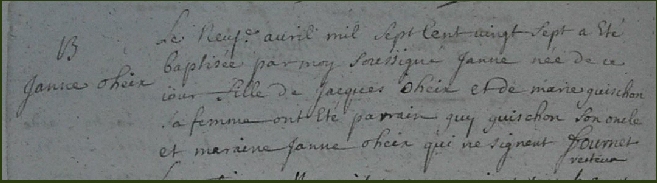 B
Janne oheix
Le Neufe. avril mil sept cent vingt sept a Eté
baptisée par moy soussigné Janne née de ce
iour fille de Jacques oheix et de marie guischon
sa femme ont Eté parrain guy guischon son oncle
et maraine Janne oheix qui ne signent fournet
recteur